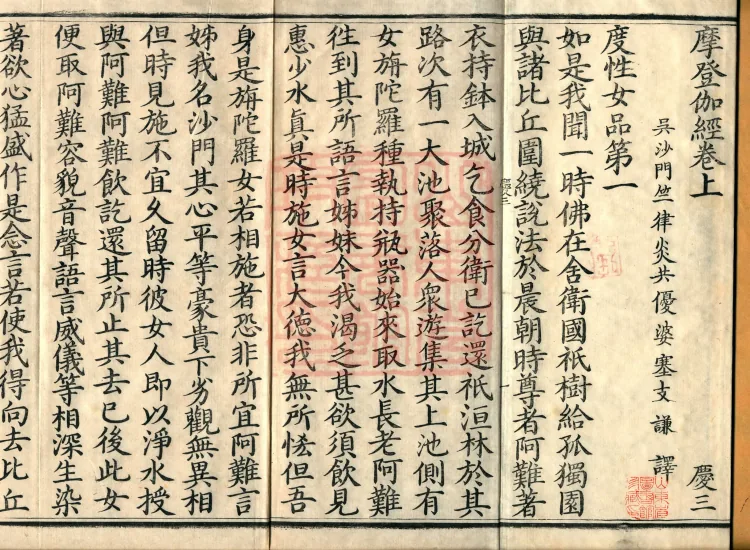 摩登伽經卷上 慶三
吳沙門竺律炎共優婆塞支謙 譯
度性女品第一
如是我聞一時佛在舍衛國祇樹給孤獨園
與諸比丘圍繞說法於晨朝時尊者阿難著
慶三 一
衣持鉢入城乞食分衛已訖還祇洹林於其
路次有一大池聚落人衆遊集其上池側有
女旃陀羅種執持瓶器始來取水長老阿難
往到其所語言姊妹今我渴乏甚欲須飲見
惠少水眞是時施女言大德我無所恡但吾
身是旃陀羅女若相施者恐非所宜阿難言
姊我名沙門其心平等豪貴下劣觀無異相
但時見施不宜久留時彼女人即以淨水授
與阿難阿難飲訖還其所止其去已後此女
便取阿難容貌音聲語言威儀等相深生染
著欲心猛盛作是念言若使我得向去比丘